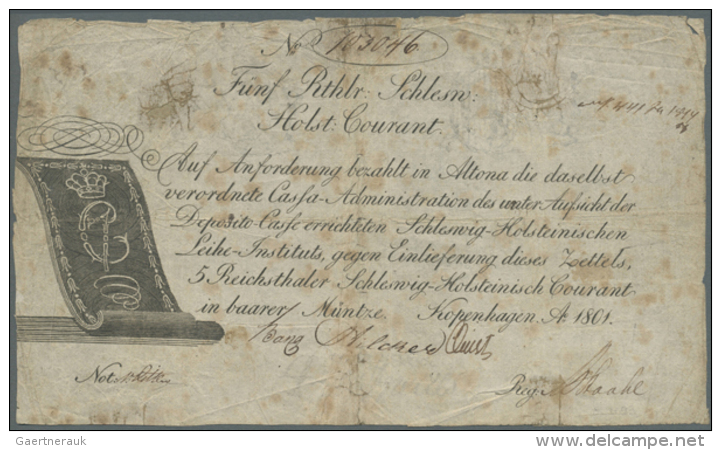 No 103046
Fünf Rthlr: Schlesw:
Holst: Courant.
Auf Anforderung bezahlt in Altona die daselbst
verordnete Cassa-Administration des unter Aufsicht der
Deposito-Casse errichteten Schleswig-Holsteinischen
Leihe-Instituts, gegen Einlieferung dieses Zettels,
5 Reichsthaler Schleswig-Holsteinisch Courant
in baarer Müntze. Kopenhagen. A: 1801.
Bang
Not:
Reg:
Gaertnerauk
delcampe.net